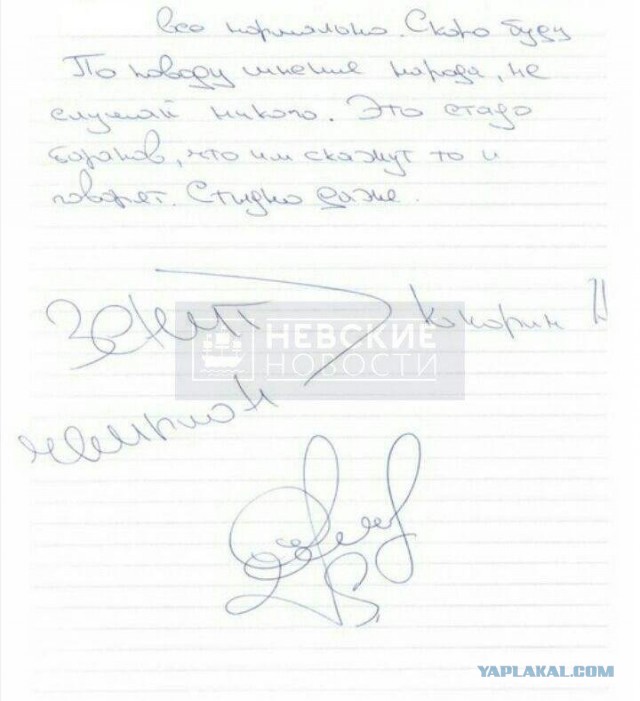 все нормально. Скоро буду
По поводу мнение народа, не
слушай никого. Это стадо
баранов, что им скажут то и
говорят. Стыдно даже.
Зенит
Кокорин
НЕВСКИЕ
НОВОСТИ
чемпион
YAPLAKAL.COM